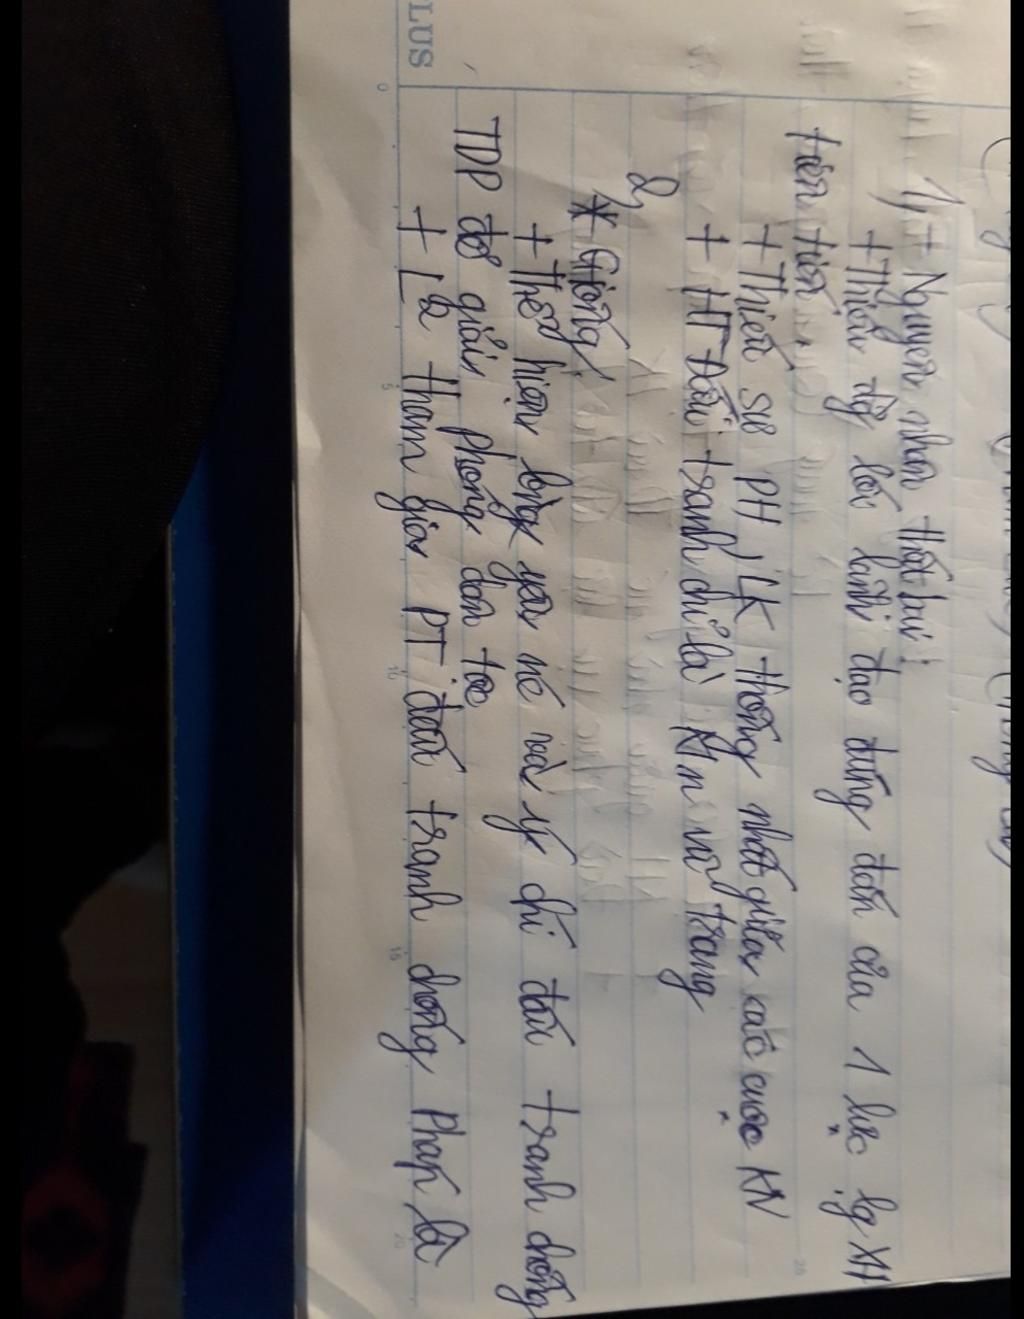 LUS
1, + Nguyên nhân thất bại :
+ Thiếu đg lối lãnh đạo đúng đắn của 1 lực lg XH
tiên tiến
+ Thiếu sự PH, LK thống nhất giữa các cuộc KN
+ HT Đấu tranh chỉ là KN vũ trang
2,
* Giống
+ Thể hiện lòng yêu nc và ý chí đấu tranh chống
TDP để giải phóng dân tộc
+ L² tham gia PT đấu tranh chống Pháp là
0
5
10
15
20